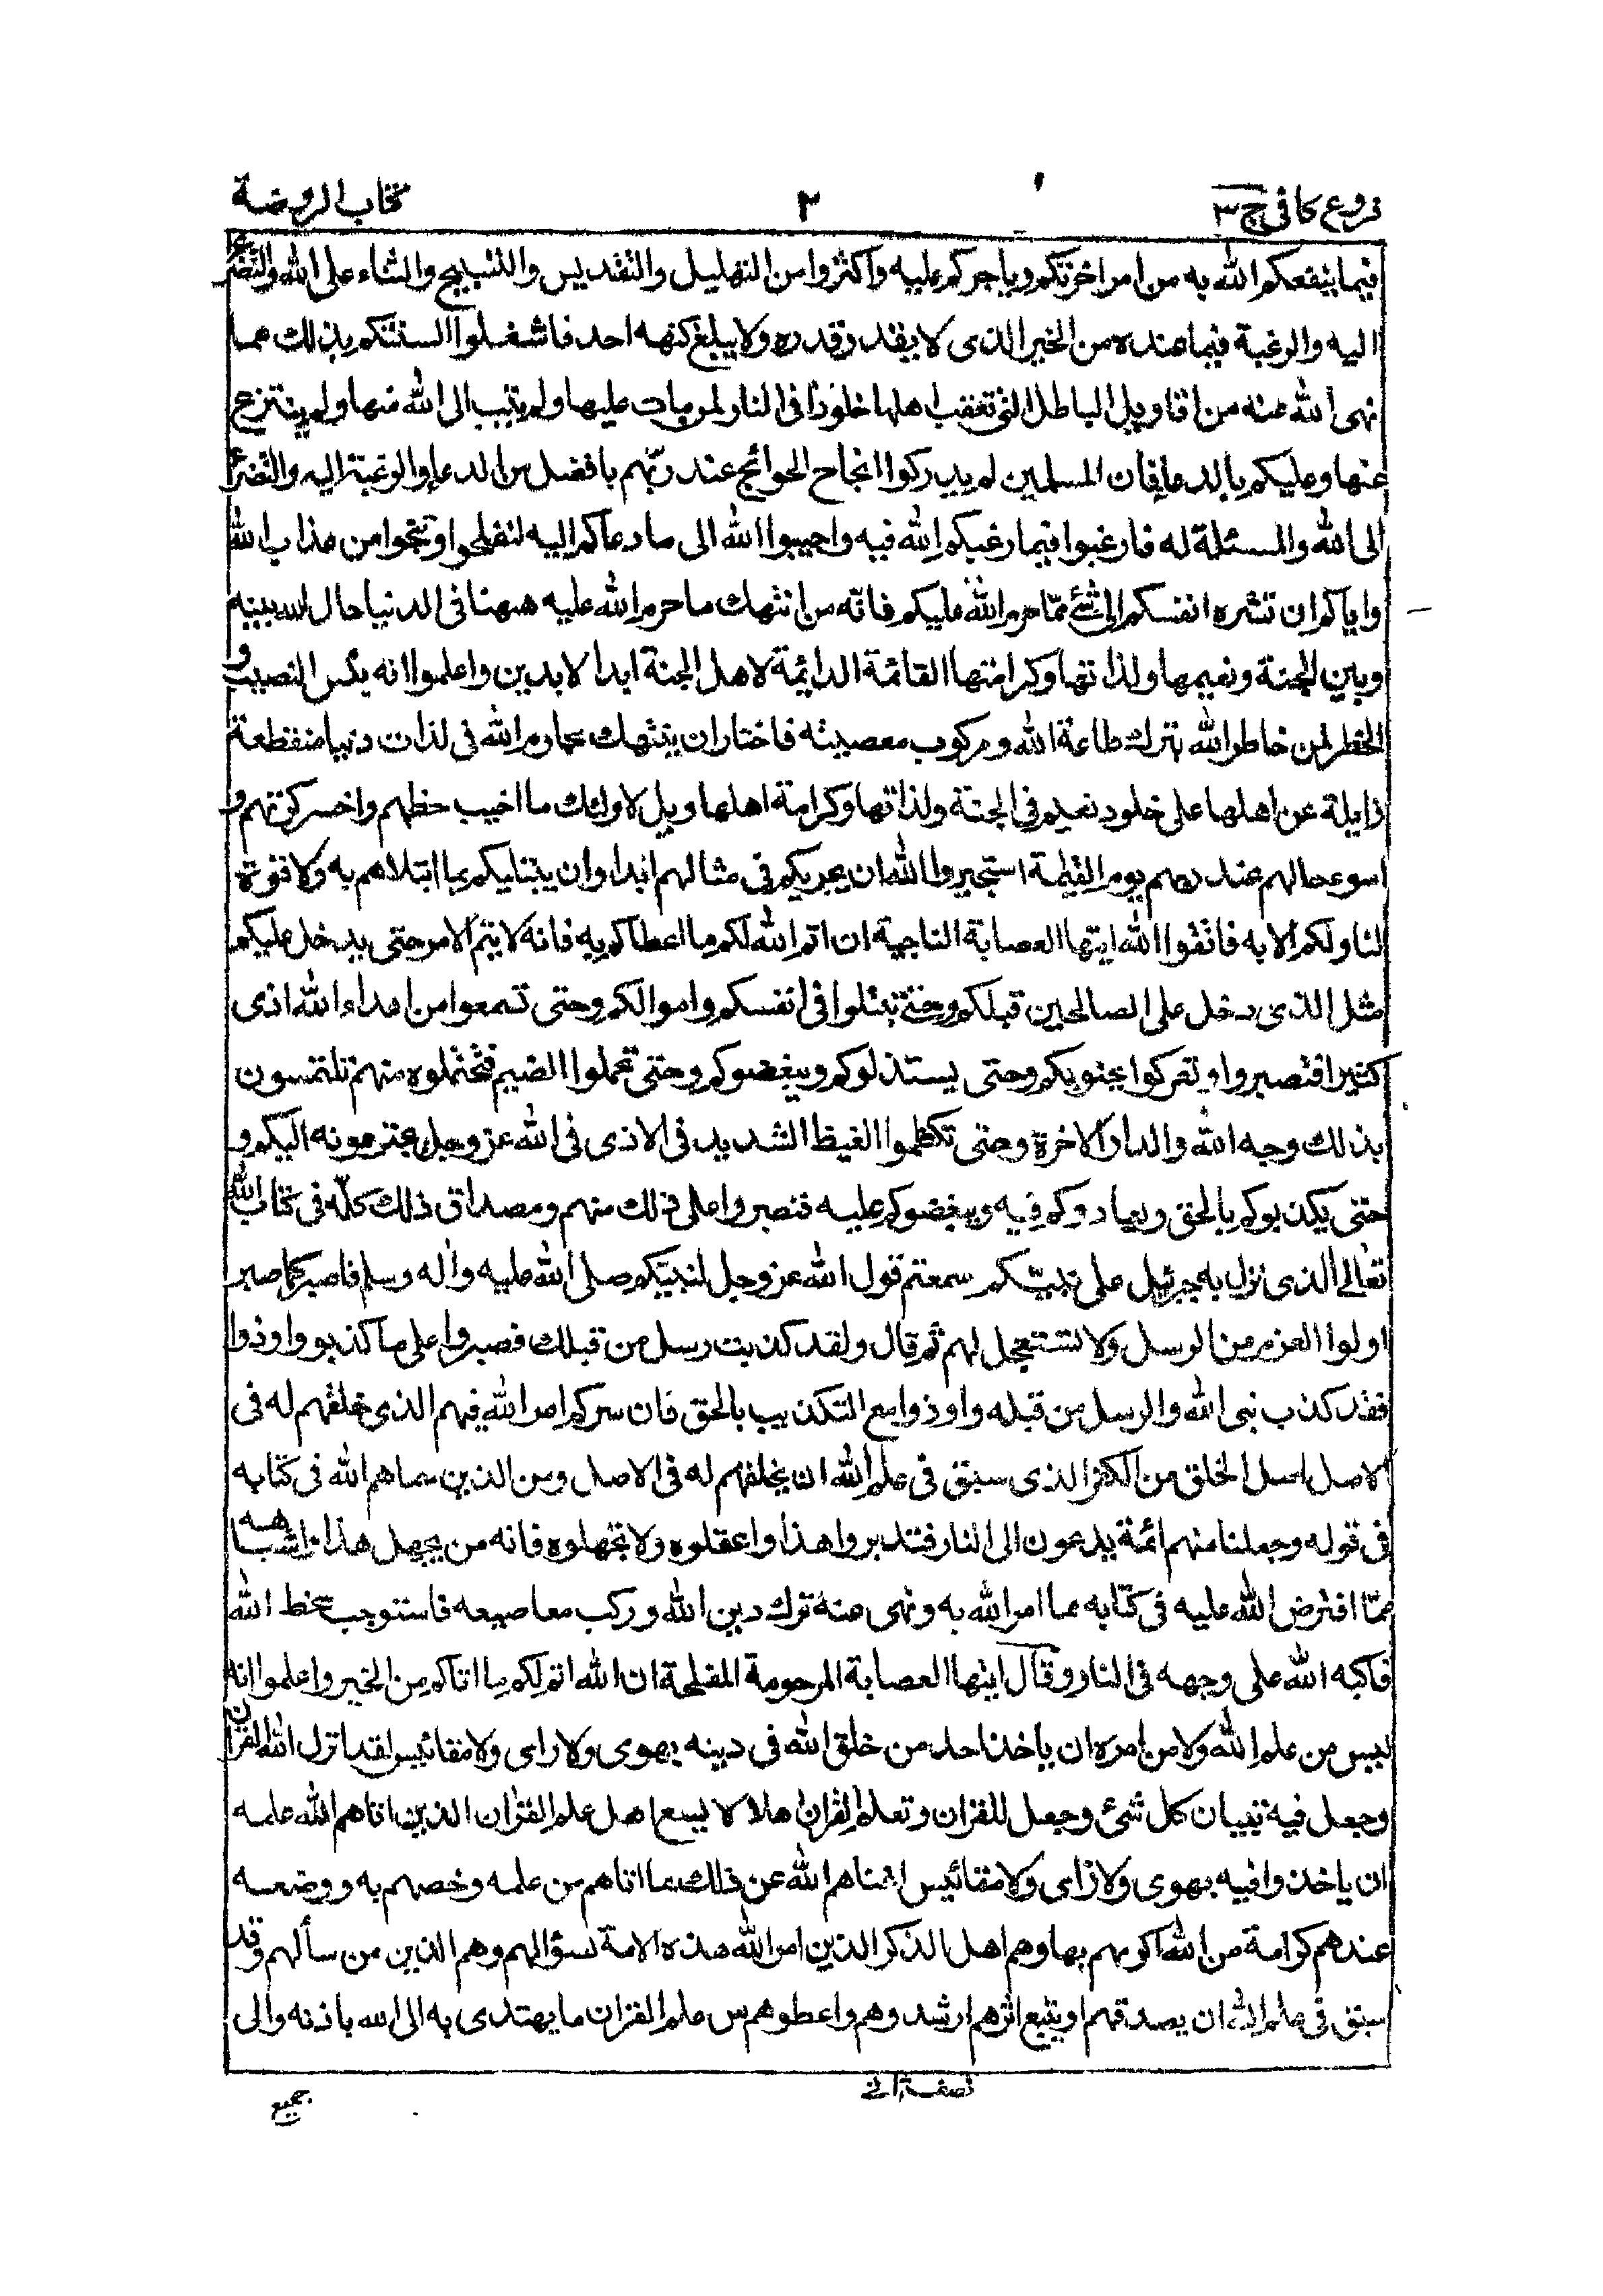 فروع كافى ج٣
٢
كتاب الروضة
فيما ينفعكم الله به من امر اخرتكم وياجركم عليه واكثروا من التهليل والتقديس والتسبيح والثناء على الله والتضرع
اليه والرغبة فيما عنده من الخير الذى لا يقدر قدره ولا يبلغ كنهه احد فاشغلوا السنتكم بذلك عما
نهى الله عنه من اقاويل الباطل التى تعقب اهلها خلودا فى النار لمن مات عليها ولم يتب الى الله منها ولم ينتزع
عنها وعليكم بالدعا فان المسلمين لم يدركوا انجاح الحوائج عند ربّهم بافضل من الدعاء والرغبة اليه والتضرع
الى الله والمسئلة له فارغبوا فيما رغبكم الله فيه واجيبوا الله الى ما دعاكم اليه لتفلحوا وتنجوا من عذاب الله
واياكم ان تشره انفسكم الى شئ ممّا حرم الله عليكم فانّه من انتهك ما حرم الله عليه ههنا فى الدنيا حال الله بينه
وبين الجنة ونعيمها ولذاتها وكرامتها القائمة الدائمة لاهل الجنة ابدا لابدين واعلموا انه بئس النصيب و
الخطر لمن خاطر الله بترك طاعة الله وركوب معصيته فاختار ان ينتهك محارم الله فى لذات دنيا منقطعة
زايلة عن اهلها على خلود نعيم فى الجنة ولذاتها وكرامة اهلها ويل لاولئك ما اخيب حظهم واخسر كرتهم و
اسوء حالهم عند ربهم يوم القيمة استجيروا الله ان يجريكم فى مثالهم ابدا وان يبتليكم بما ابتلاهم به ولا قوة
لنا ولكم الا به فاتقوا الله ايتها العصابة الناجية ان اتم الله لكم ما اعطاكم به فانه لا يتم الامر حتى يدخل عليكم
مثل الذى دخل على الصالحين قبلكم وحتى تبتلوا فى انفسكم واموالكم وحتى تسمعوا من اعداء الله اذى
كثيرا فتصبروا وتعركوا بجنوبكم وحتى يستذلوكم ويبغضوكم وحتى تحملوا الضيم فتحتملوه منهم تلتمسون
بذلك وجه الله والدار الاخرة وحتى تكظموا الغيظ الشديد فى الاذى فى الله عز وجل يجترمونه اليكم و
حتى يكذبوكم بالحق ويعادوكم فيه ويبغضوكم عليه فتصبروا على ذلك منهم ومصداق ذلك كلّه فى كتاب الله
تعالى الذى نزل به جبرئيل على نبيّكم سمعتم قول الله عز وجل لنبيّكم صلى الله عليه واله وسلم فاصبر كما صبر
اولوا العزم من الرسل ولا تستعجل لهم ثم قال ولقد كذبت رسل من قبلك فصبروا على ما كذبوا واوذوا
فقد كذب نبى الله والرسل من قبله واوذوا مع التكذيب بالحق فان سركم امر الله فيهم الذى خلقهم له فى
الاصل اصل الخلق من الكفر الذى سبق فى علم الله ان يخلقهم له فى الاصل ومن الذين سماهم الله فى كتابه
فى قوله وجعلنا منهم ائمة يدعون الى النار فتدبروا هذا واعقلوه ولا تجهلوه فانه من يجهل هذا واشباهه
ممّا افترض الله عليه فى كتابه مما امر الله به ونهى عنه ترك دين الله وركب معاصيه فاستوجب سخط الله
فاكبه الله على وجهه فى النار وقال ايتها العصابة المرحومة المفلحة ان الله اتم لكم ما اتاكم من الخير واعلموا انه
ليس من علم الله ولا من امره ان ياخذ احد من خلق الله فى دينه بهوى ولا راى ولا مقائيس لقد انزل الله القران
وجعل فيه تبيان كل شئ وجعل للقران وتعلم القران اهلا لا يسع اهل علم القران الذين اتاهم الله علمه
ان ياخذوا فيه بهوى ولا راى ولا مقائيس اغناهم الله عن ذلك بما اتاهم من علمه وخصهم به ووضعه
عندهم كرامة من الله اكرمهم بها وهم اهل الذكر الذين امر الله هذه الامة بسؤالهم وهم الذين من سألهم وقد
سبق فى علم الله ان يصدقهم ويتبع اثرهم ارشدوهم واعطوهم من علم القران ما يهتدى به الى الله باذنه والى
جميع